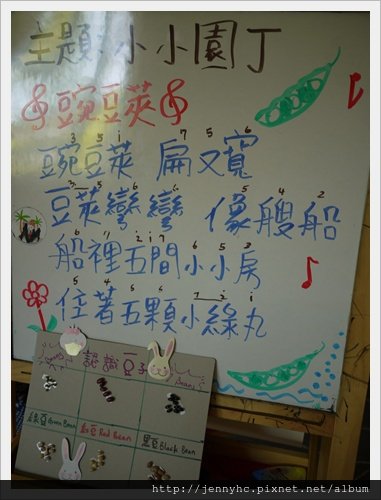 主題:小小園丁
豌豆莢
3 5 i 7 5 6
豌豆莢 扁又寬
豆莢彎彎 像艘船
5 4 2
船裡五間小小房
住著五顆小綠丸
認識豆子
Beans
綠豆Green Bean
紅豆Red Bean
黑豆Black Bean
http://jennyhc.pixnet.net/album